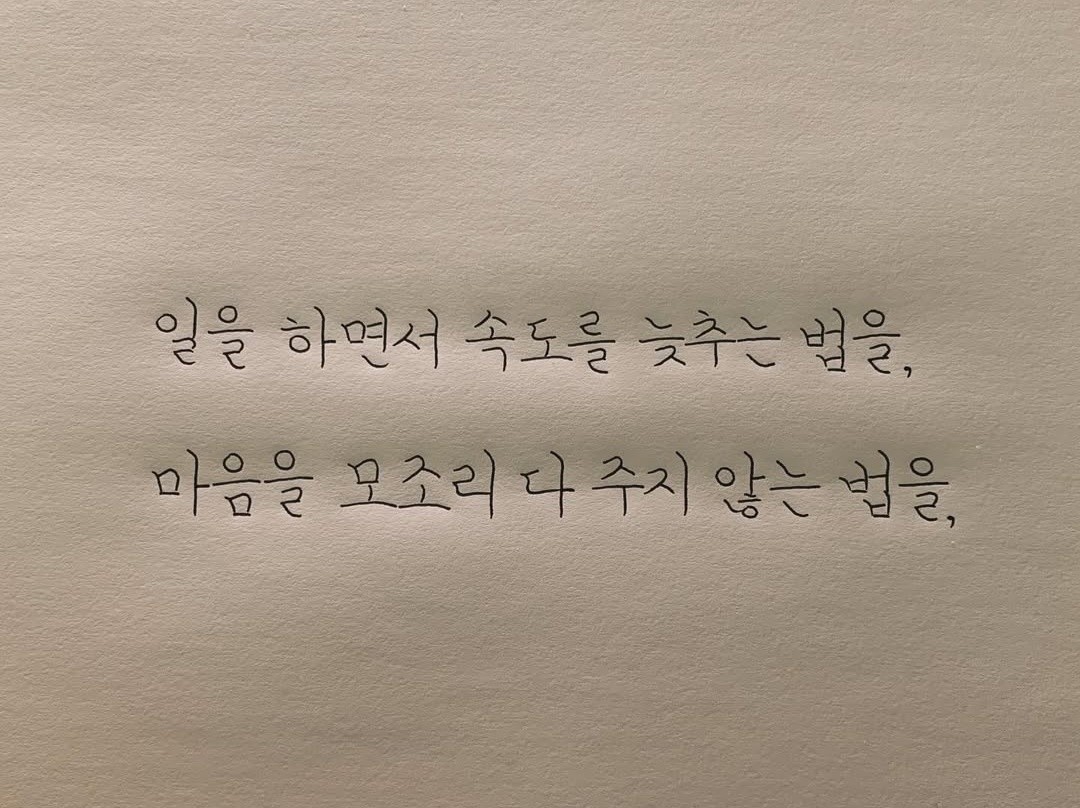 일을 하면서 속도를 늦추는 법을,
마음을 모조리 다 주지 않는 법을,